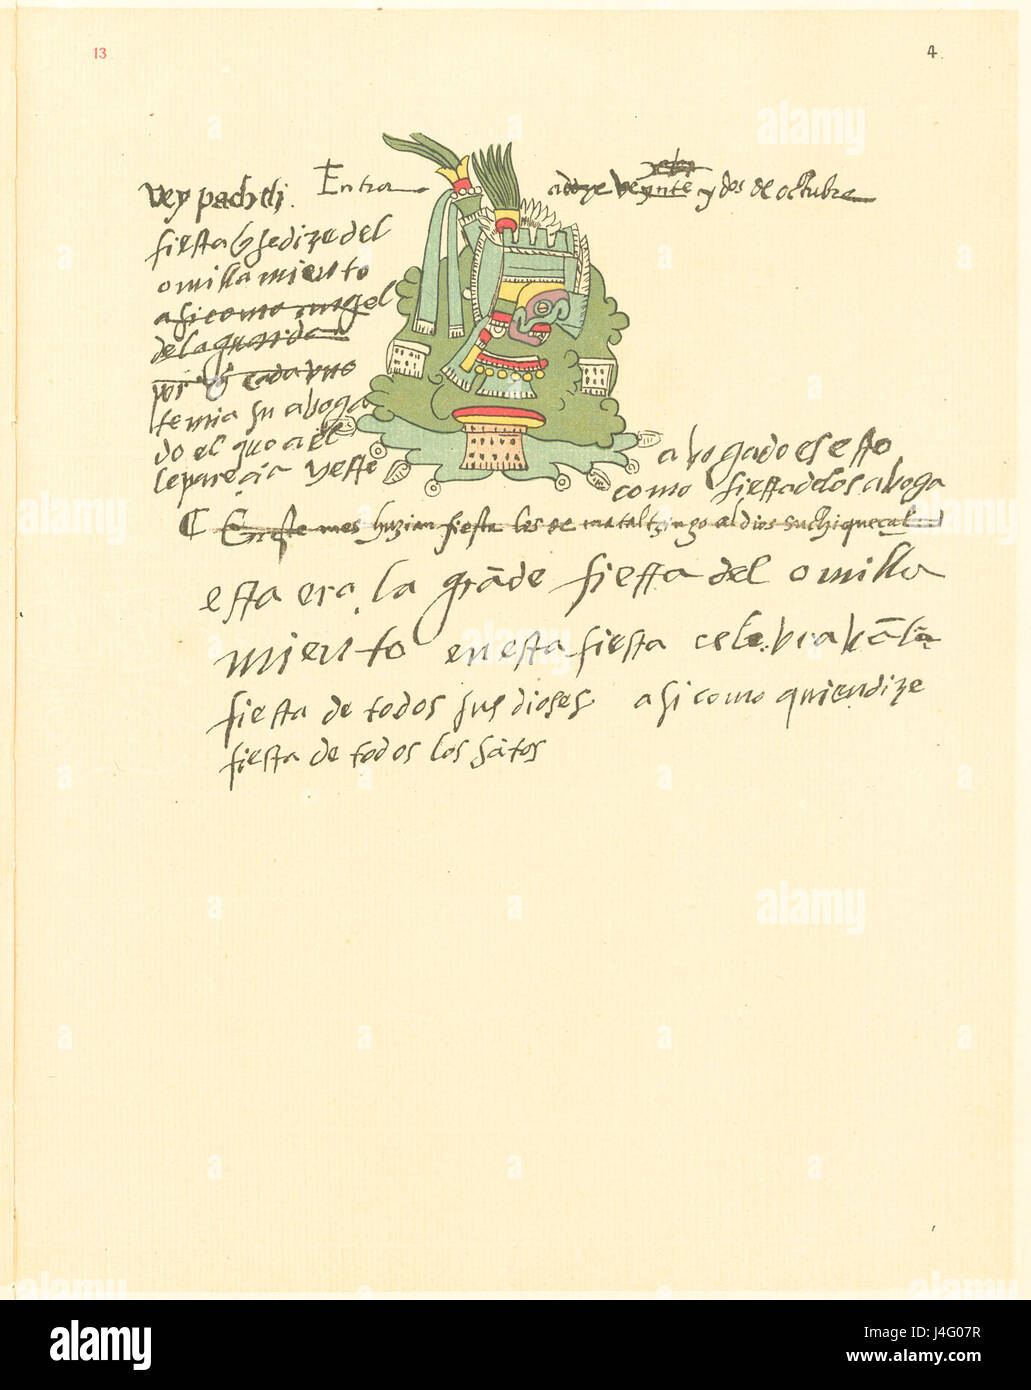 13
4
Vey pachtli.
Entra
a doze veynte y dos de octubre
fiesta q̃ se dize del
omillamiento
asi como angel
de la guarda
cada vno
temia su aboga
do el qual
le parecia y este
abogado es esto
como fiesta de los aboga
En este mes hazian fiesta los de matalzingo al dios suchiqueçal
esta era la grãde fiesta del omilla
miento en esta fiesta celebraban la
fiesta de todos sus dioses asi como quien dize
fiesta de todos los sãtos
alamy
Image ID: J4G07R
www.alamy.com